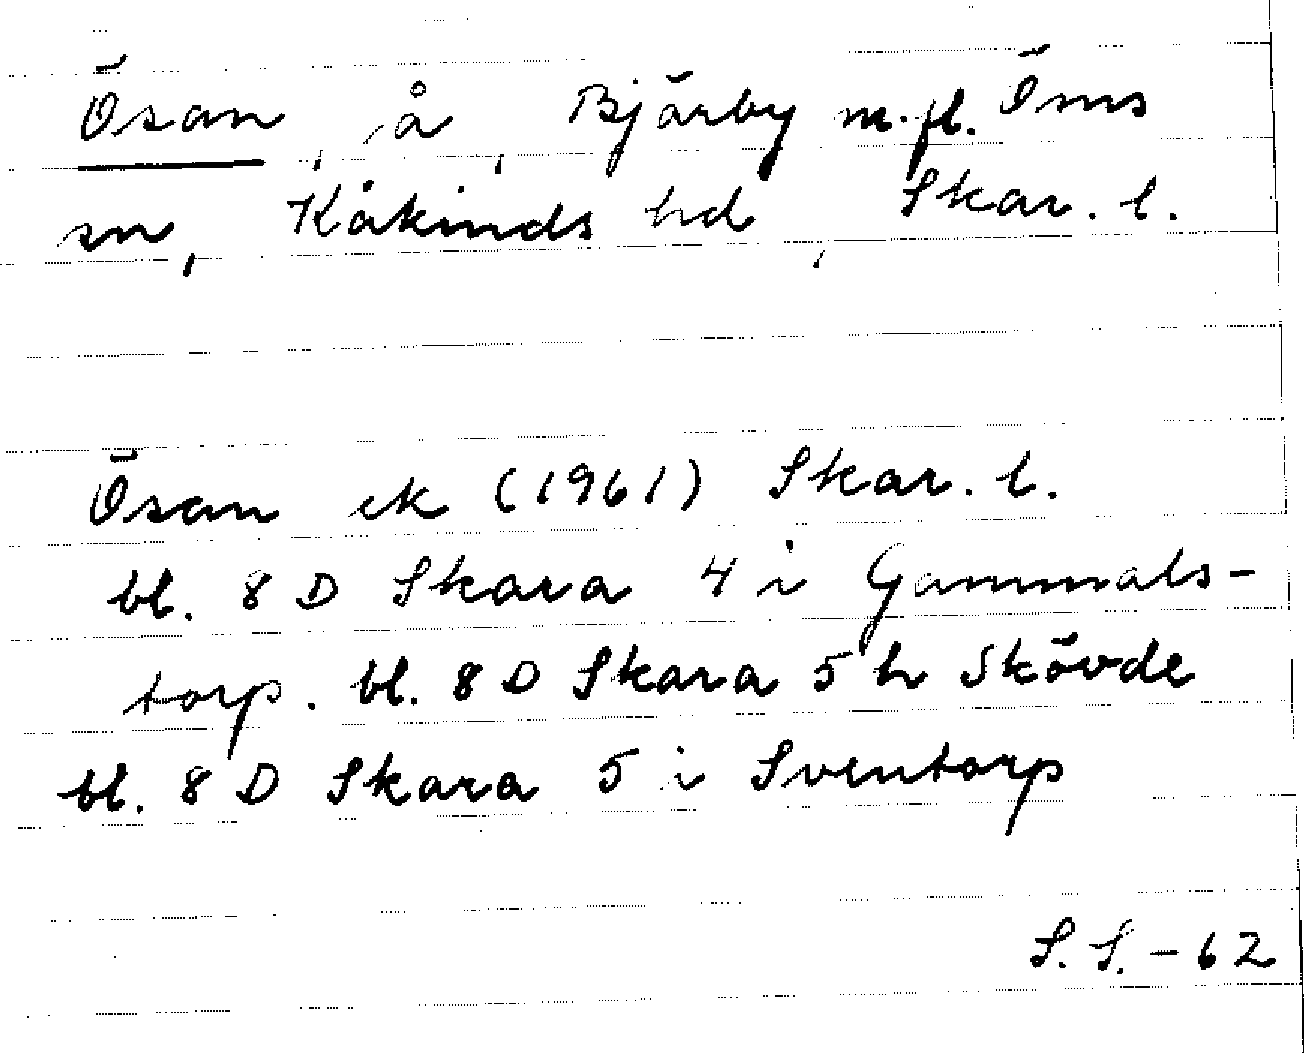 Ösan, å, Bjärby m.fl. Öms
sn, Kåkinds hd, Skar. l.
Ösan ek (1961) Skar. l.
bl. 8 D Skara 4 i Gammals-
torp. bl. 8 D Skara 5 h Skövde
bl. 8 D Skara 5 i Sventorp
S. S. - 62